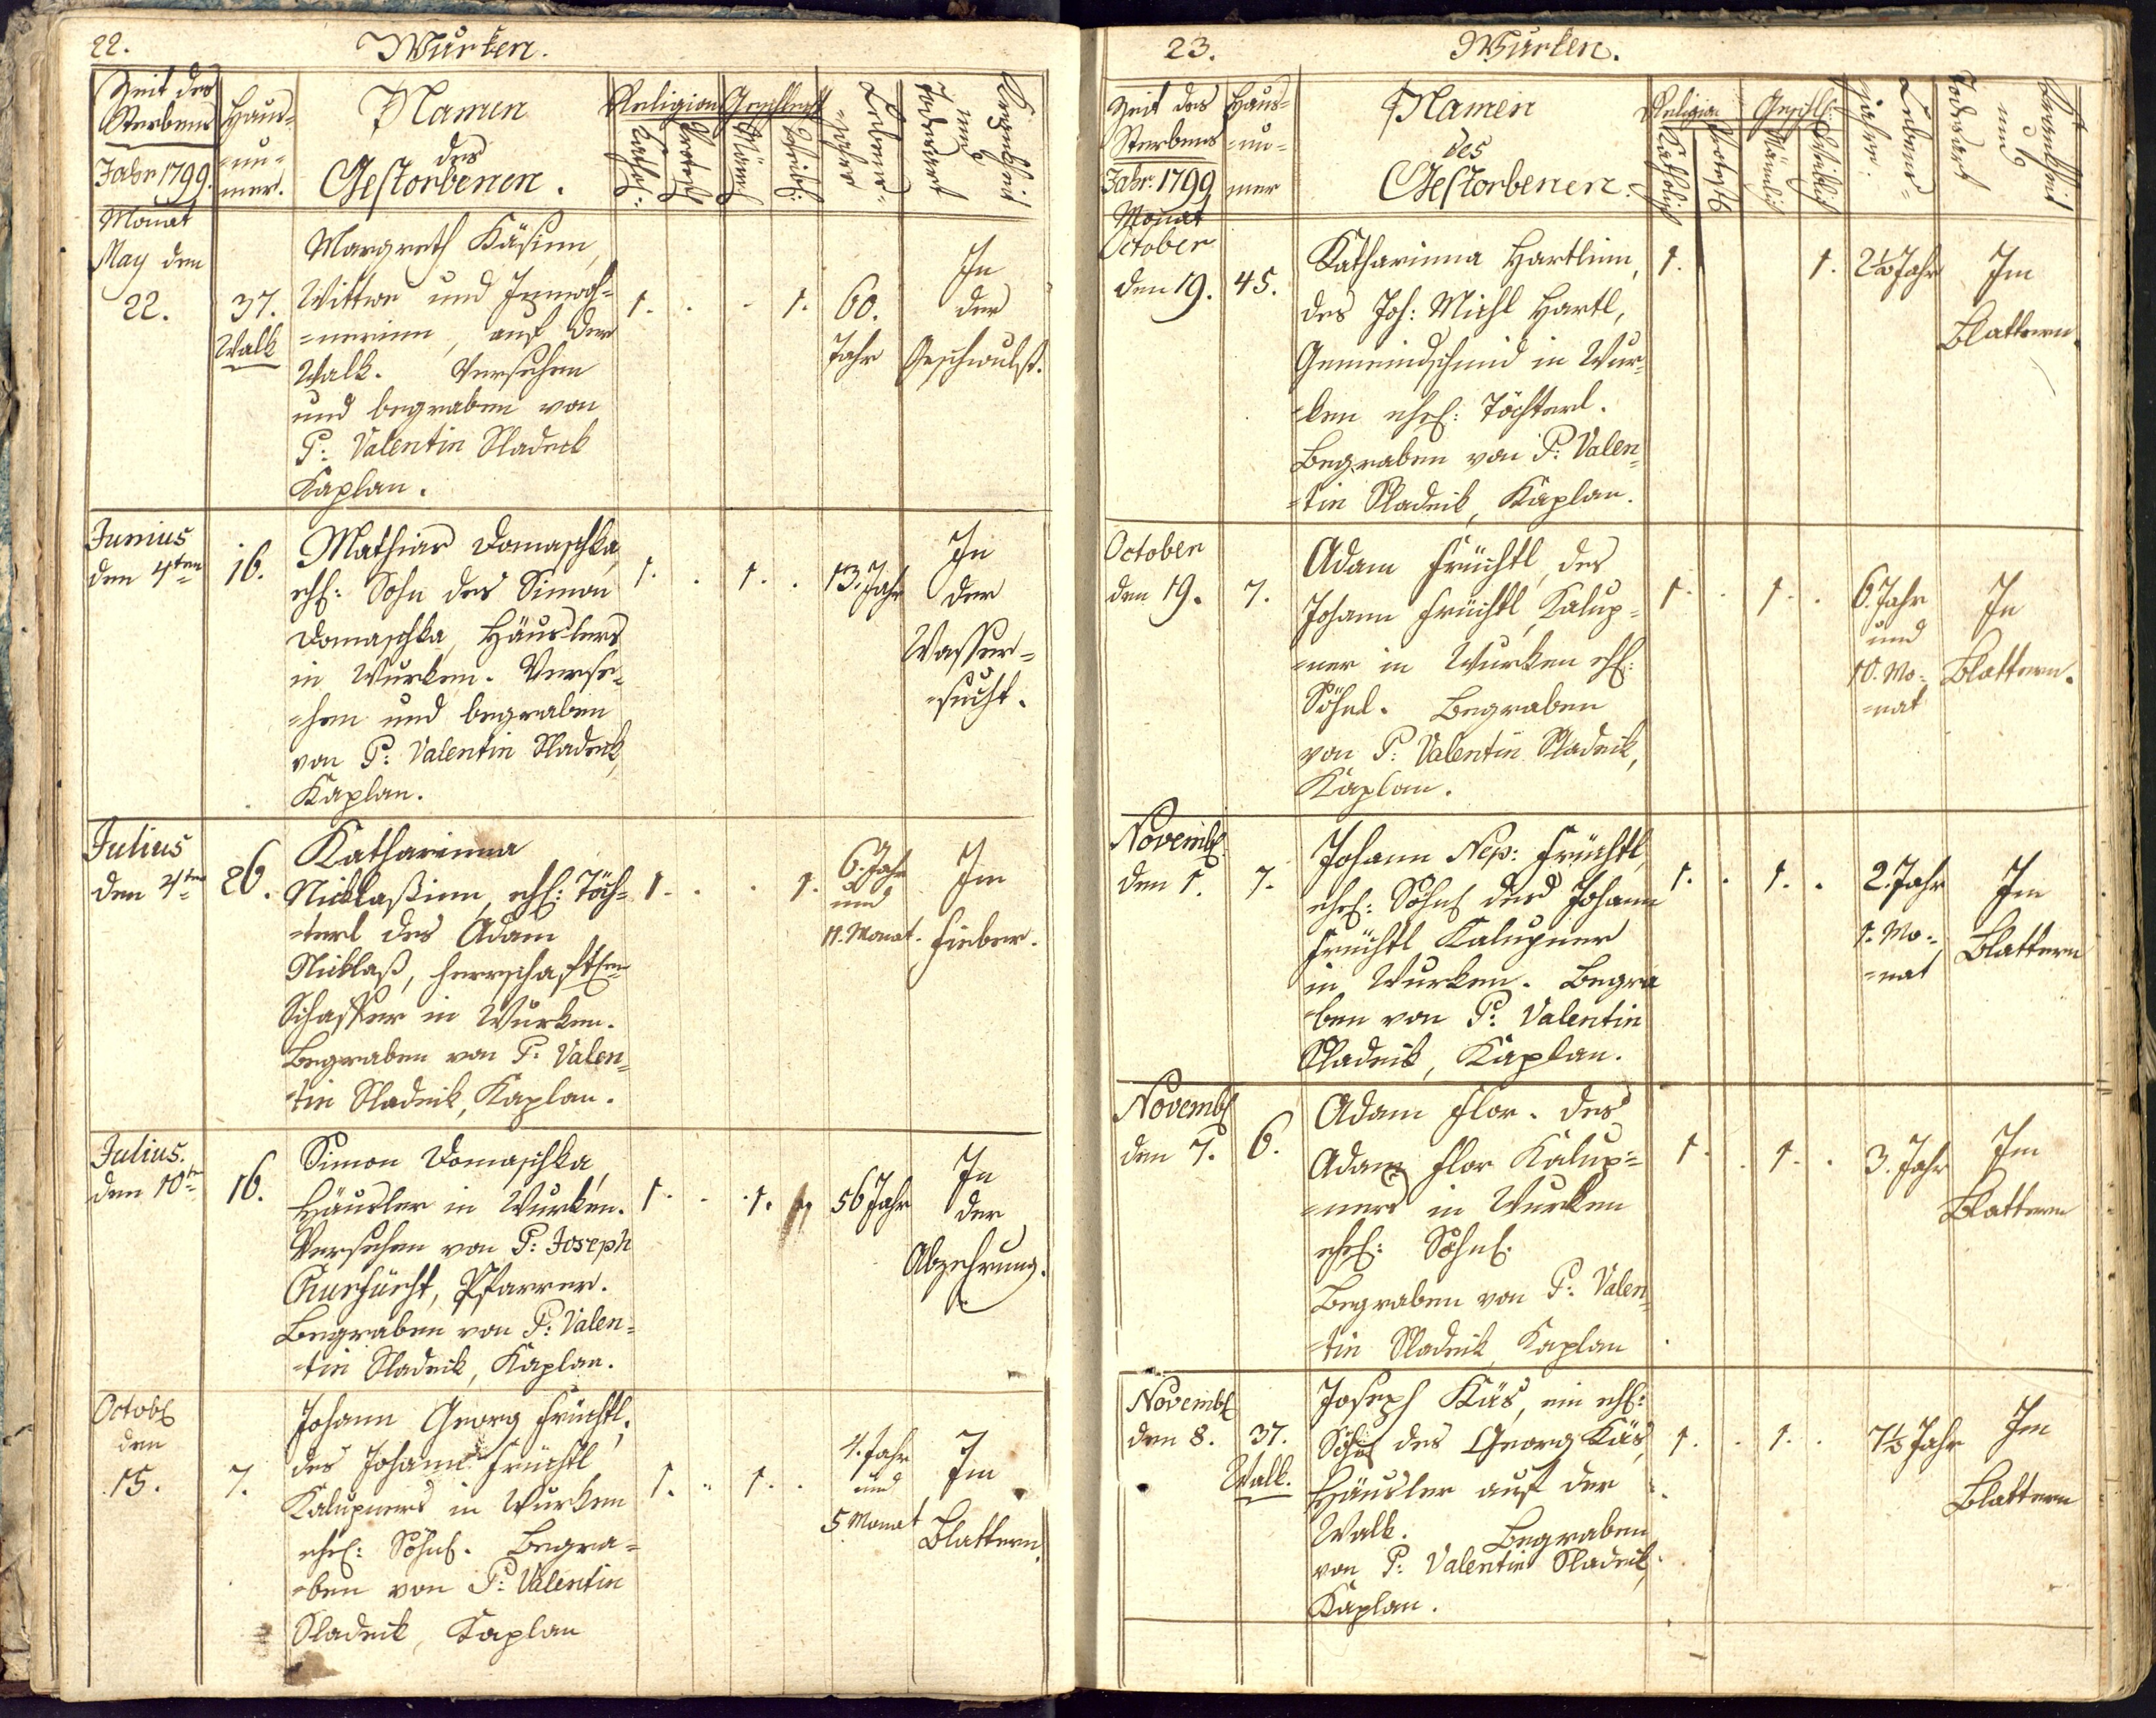 22.
Wurken.
Zeit des
Sterbens
Jahr 1799.
Haus-
=nu=
mer.
Namen
des
Gestorbenen.
Religion
Kathol:
Protest
Geschlecht
Männl
Weibl:
Lebens=
=jahre
Krankheit
und
Todesart
Monat
May den
22.
37.
Walk
Margreth Käsinn,
Wittwe und Innwoh=
=nerinn, auf der
Walk. Versehen
und begraben von
P: Valentin Sladeck
Kaplan.
1.
1.
60.
Jahr
In
der
Geschwulst.
Junius
den 4ten
16.
Mathias Domaschka,
ehl: Sohn des Simon
Domaschka, Häuslers
in Wurken. Verse=
=hen und begraben
von P: Valentin Sladeck,
Kaplan.
1.
1.
13. Jahr
In
der
Wasser=
=sucht.
Julius
den 4ten
26.
Katharinna
Nicklaßinn, ehl: Töch=
=terl des Adam
Nicklaß, herrschaftlen
Schaffer in Wurken.
Begraben von P: Valen=
tin Sladeik, Kaplan.
1.
1.
6. Jahr
und
11. Monat.
Im
Fieber.
Julius.
den 10ten
16.
Simon Domaschka,
Häusler in Wurken.
Versehen von P: Joseph
Pfarrer.
Begraben von P: Valen=
=tin Sladeik, Kaplan.
1.
1.
56 Jahr
In
der
Abzehrung.
Octobl
den
15.
7.
Johann Georg Früchtl,
des Johann Früchtl
Kalupners in Wurken
ehel: Söhnl. Begra=
=ben von P: Valentin
Sladeik, Kaplan
1.
1.
4. Jahr
und
5 Monat
Im
Blattern.
23.
Wurken.
Zeit des
Sterbens
Jahr. 1799
Haus=
=nu=
mer
Namen
des
Gestorbenen.
Religion
Katholisch
Protest
Geschl:
Männlich
Weiblich
Lebens=
jahre.
Krankheit
und
Todesart
Monat
October
den 19.
45.
Katharinna Hartlinn,
des Joh: Michl Hartl,
Gemeindschmid in Wur=
=ken ehel: Töchterl.
Begraben von P: Valen=
=tin Sladeik, Kaplan.
1.
1.
2½ Jahr
Im
Blattern.
October
den 19.
7.
Adam Früchtl, des
Johann Früchtl, Kalup=
=ner in Wurken ehl:
Söhnl. Begraben
von P: Valentin Sladeik,
Kaplan.
1.
1.
6. Jahr
und
10. Mo=
=nat
In
Blattern.
Novembl.
den 1.
7.
Johann Nep: Früchtl,
ehel: Söhnl des Johann
Früchtl Kalupner
in Wurken. Begra
ben von P: Valentin
Sladeik, Kaplan.
1.
1.
2. Jahr
1. Mo=
=nat
Im
Blattern
Novembl
den 7.
6.
Adam Flor. des
Adam Flor Kalup=
=ners in Wurken
ehel: Söhnl.
Begraben von P: Valen=
=tin Sladeik, Kaplan
1.
1.
3. Jahr
Im
Blattern
Novembl
den 8.
37.
Walk.
Joseph Käs, ein ehl:
Söhnl des Georg Käs,
Häusler auf der
Walk. Begraben
von P: Valentin Sladeik,
Kaplan.
1.
1.
7½ Jahr
Im
Blattern